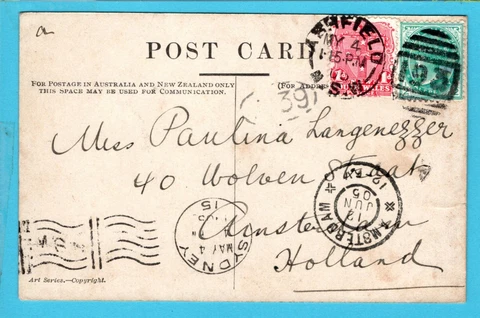 a
POST CARD
FOR POSTAGE IN AUSTRALIA AND NEW ZEALAND ONLY
THIS SPACE MAY BE USED FOR COMMUNICATION.
(FOR ADDRE
ASHFIELD
MY 4
1-25 P.M
N.S.W
391
Miss Paulina Langenezzer
40 Wolven Straat
Amsterdam
Holland
AMSTERDAM
12
JUN
05
SYDNEY
MAY 4
15
Art Series.—Copyright.